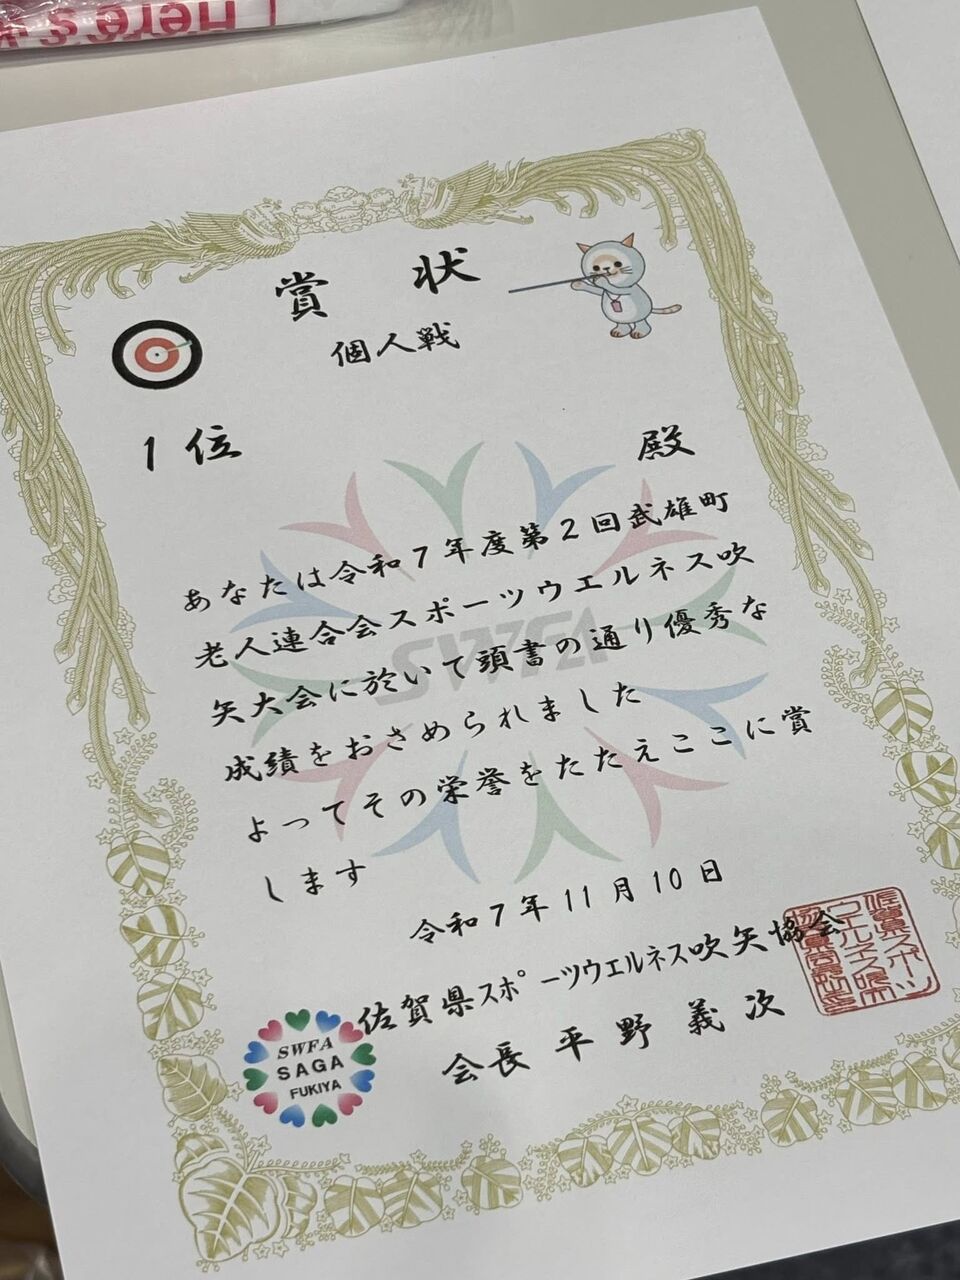 Here's
賞状
個人戦
1位 殿
あなたは令和7年度第2回武雄町
老人連合会スポーツウエルネス吹
矢大会に於いて頭書の通り優秀な
成績をおさめられました
よってその栄誉をたたえここに賞
します
SWFA
令和7年11月10日
佐賀県スポーツウエルネス吹矢協会
会長 平野義次
SWFA
SAGA
FUKIYA